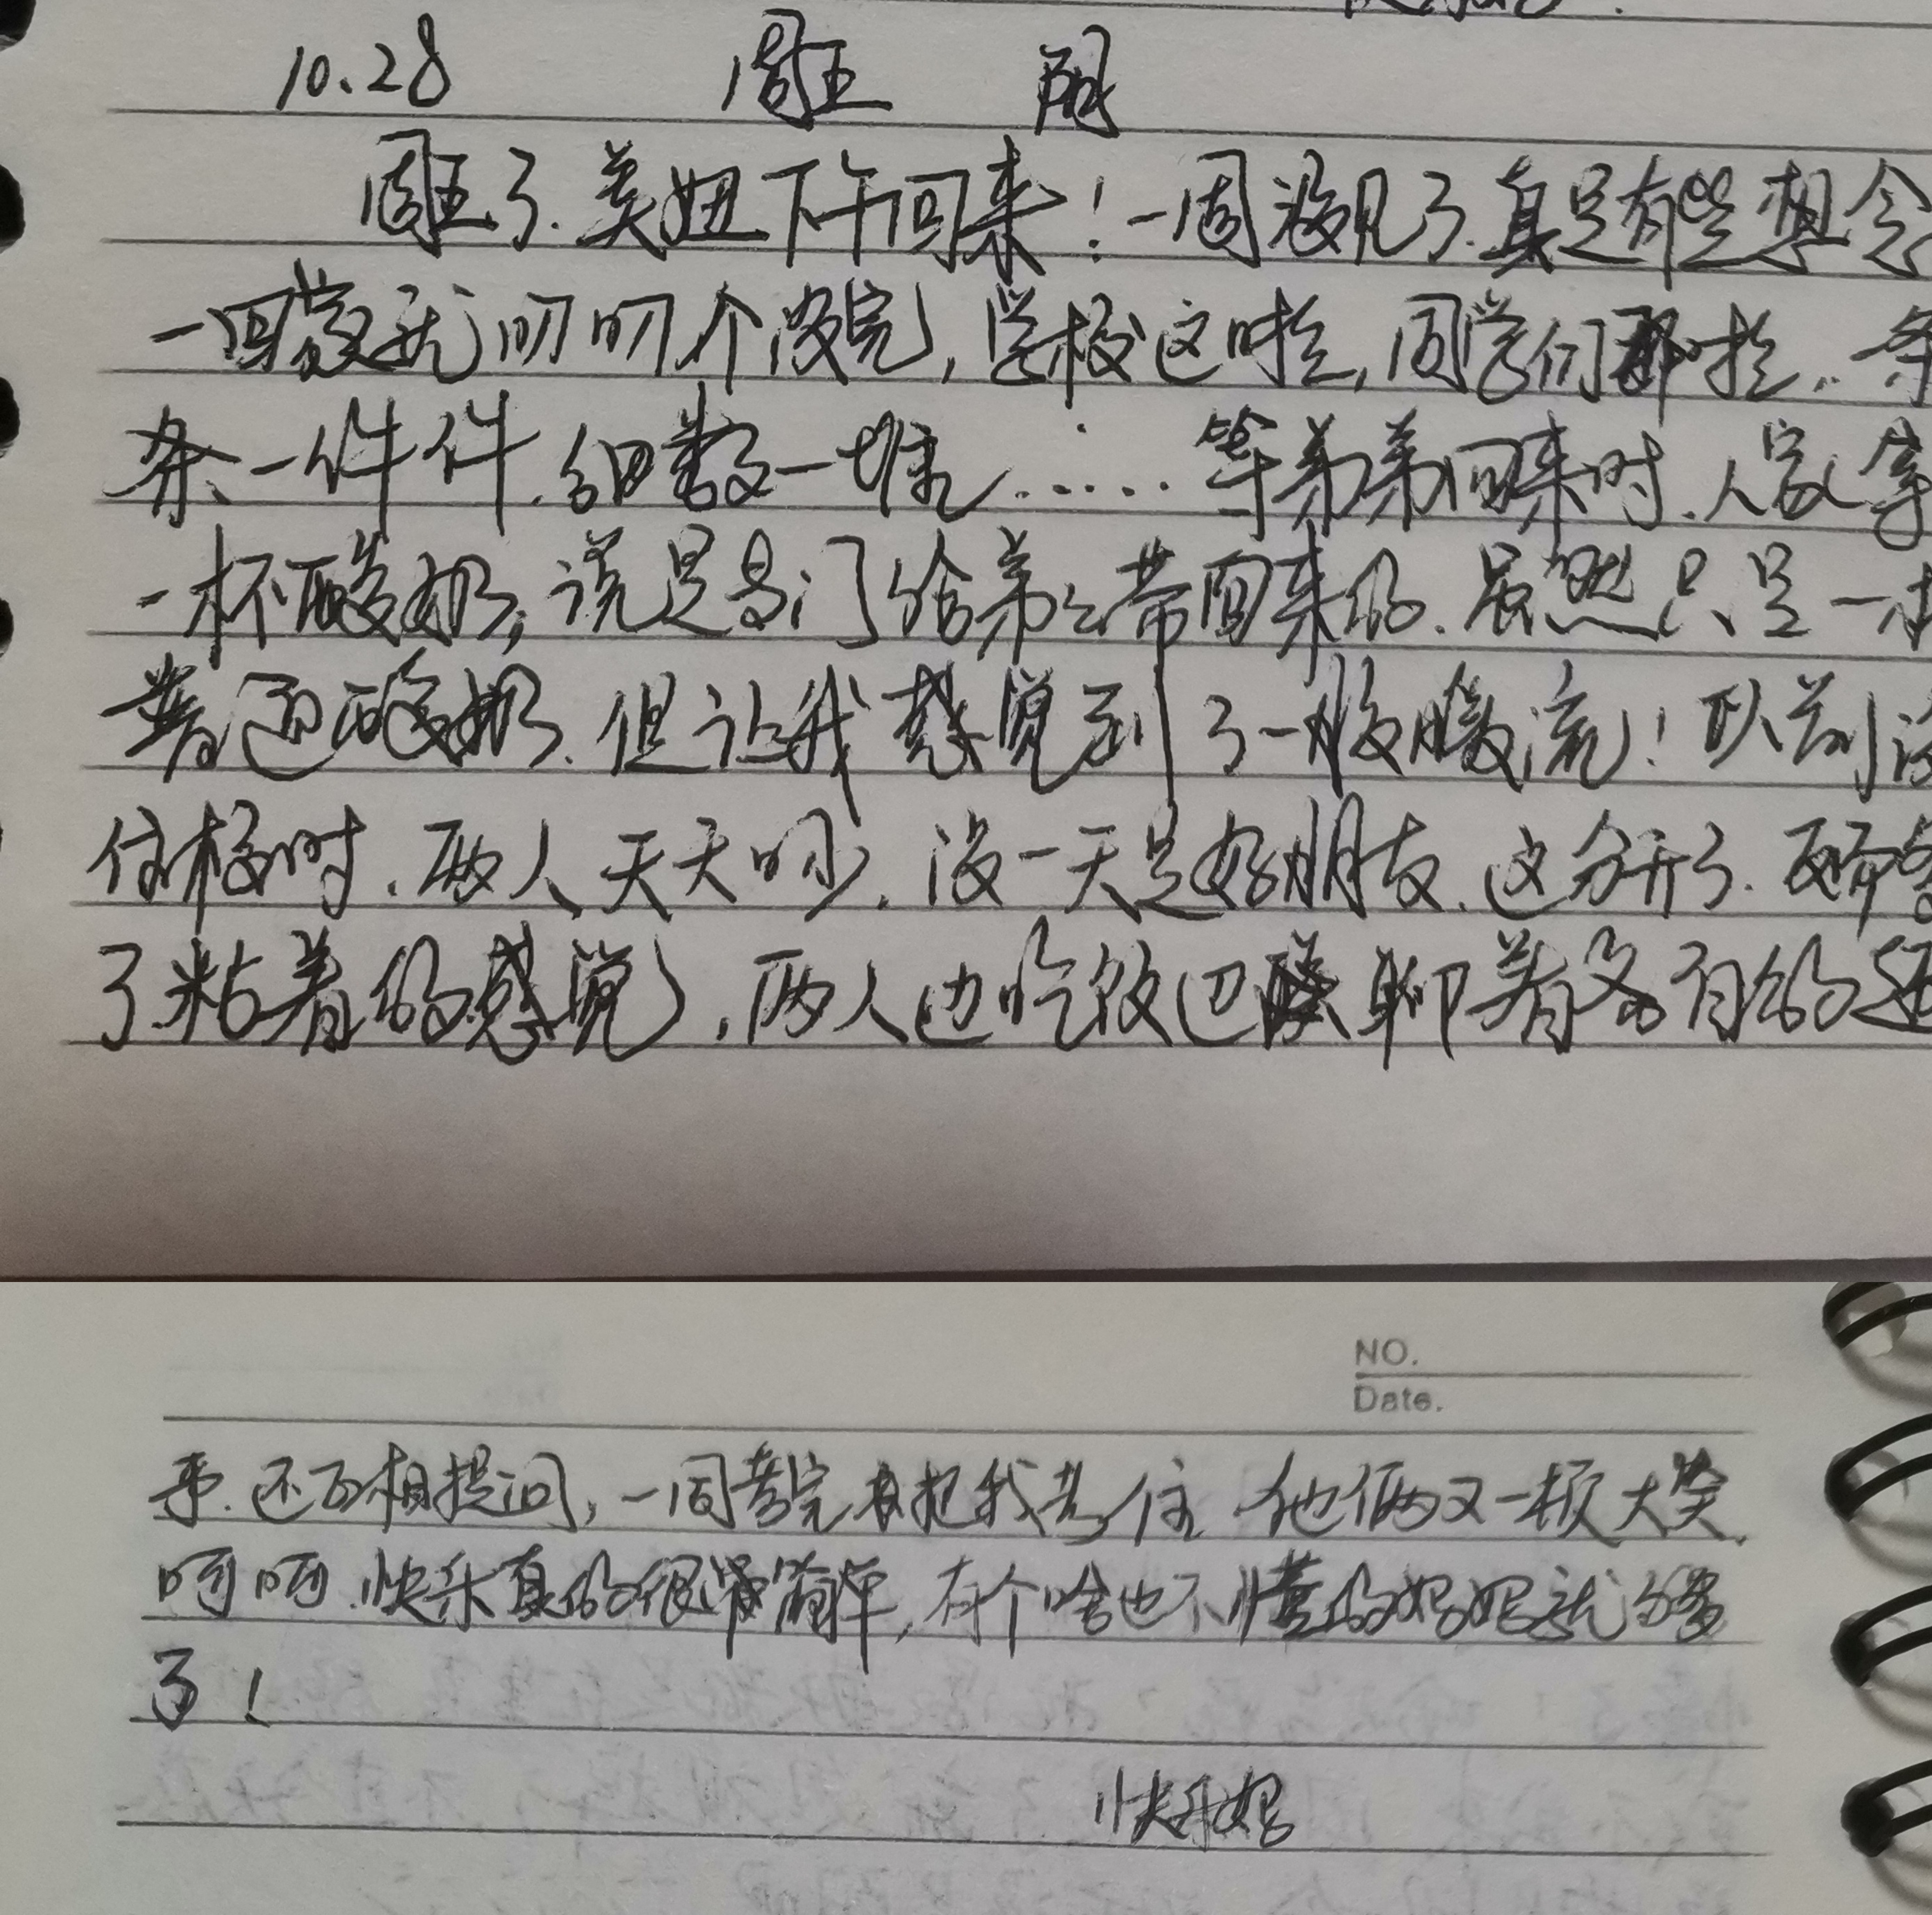 10.28 周五 阴
周五了.美妞下午回来!一周没见了.真是有些想念
一回家就叨叨个没完,学校这啦,同学们那啦..一条
条一件件.细数一堆......等弟弟回来时.人家拿
一杯酸奶,说是专门给弟弟带回来的.虽然只是一杯
普通酸奶.但让我感觉到了一股暖流!以前没
住校时.两人天天吵.没一天是好朋友.这分开了.
了粘着的感觉,两人边吃饭边聊着各自的
事.还互相提问,一同考完来把我考住.他俩又一顿大笑.
呵呵.快乐真的很简单,有个啥也不懂的妈妈就够
了!
NO.
Date.